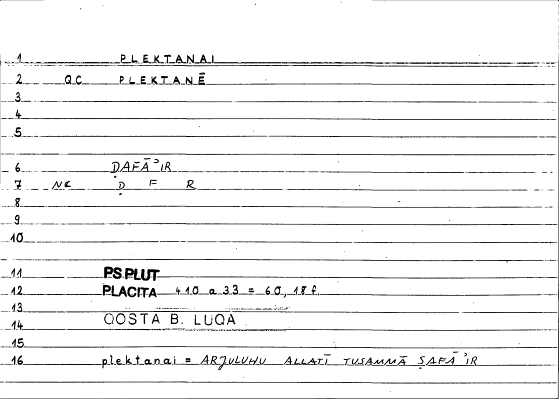 1 PLEKTANAI
2 QC PLEKTANĒ
3
4
5
6 ḌAFĀʾIR
7 NC Ḍ F R
8
9
10
11 PS PLUT
12 PLACITA 410 a 33 = 60, 18 f.
13
14 QOSTA B. LUQA
15
16 plektanai = ARJULUHU ALLATĪ TUSAMMĀ ṢAFĀʾIR